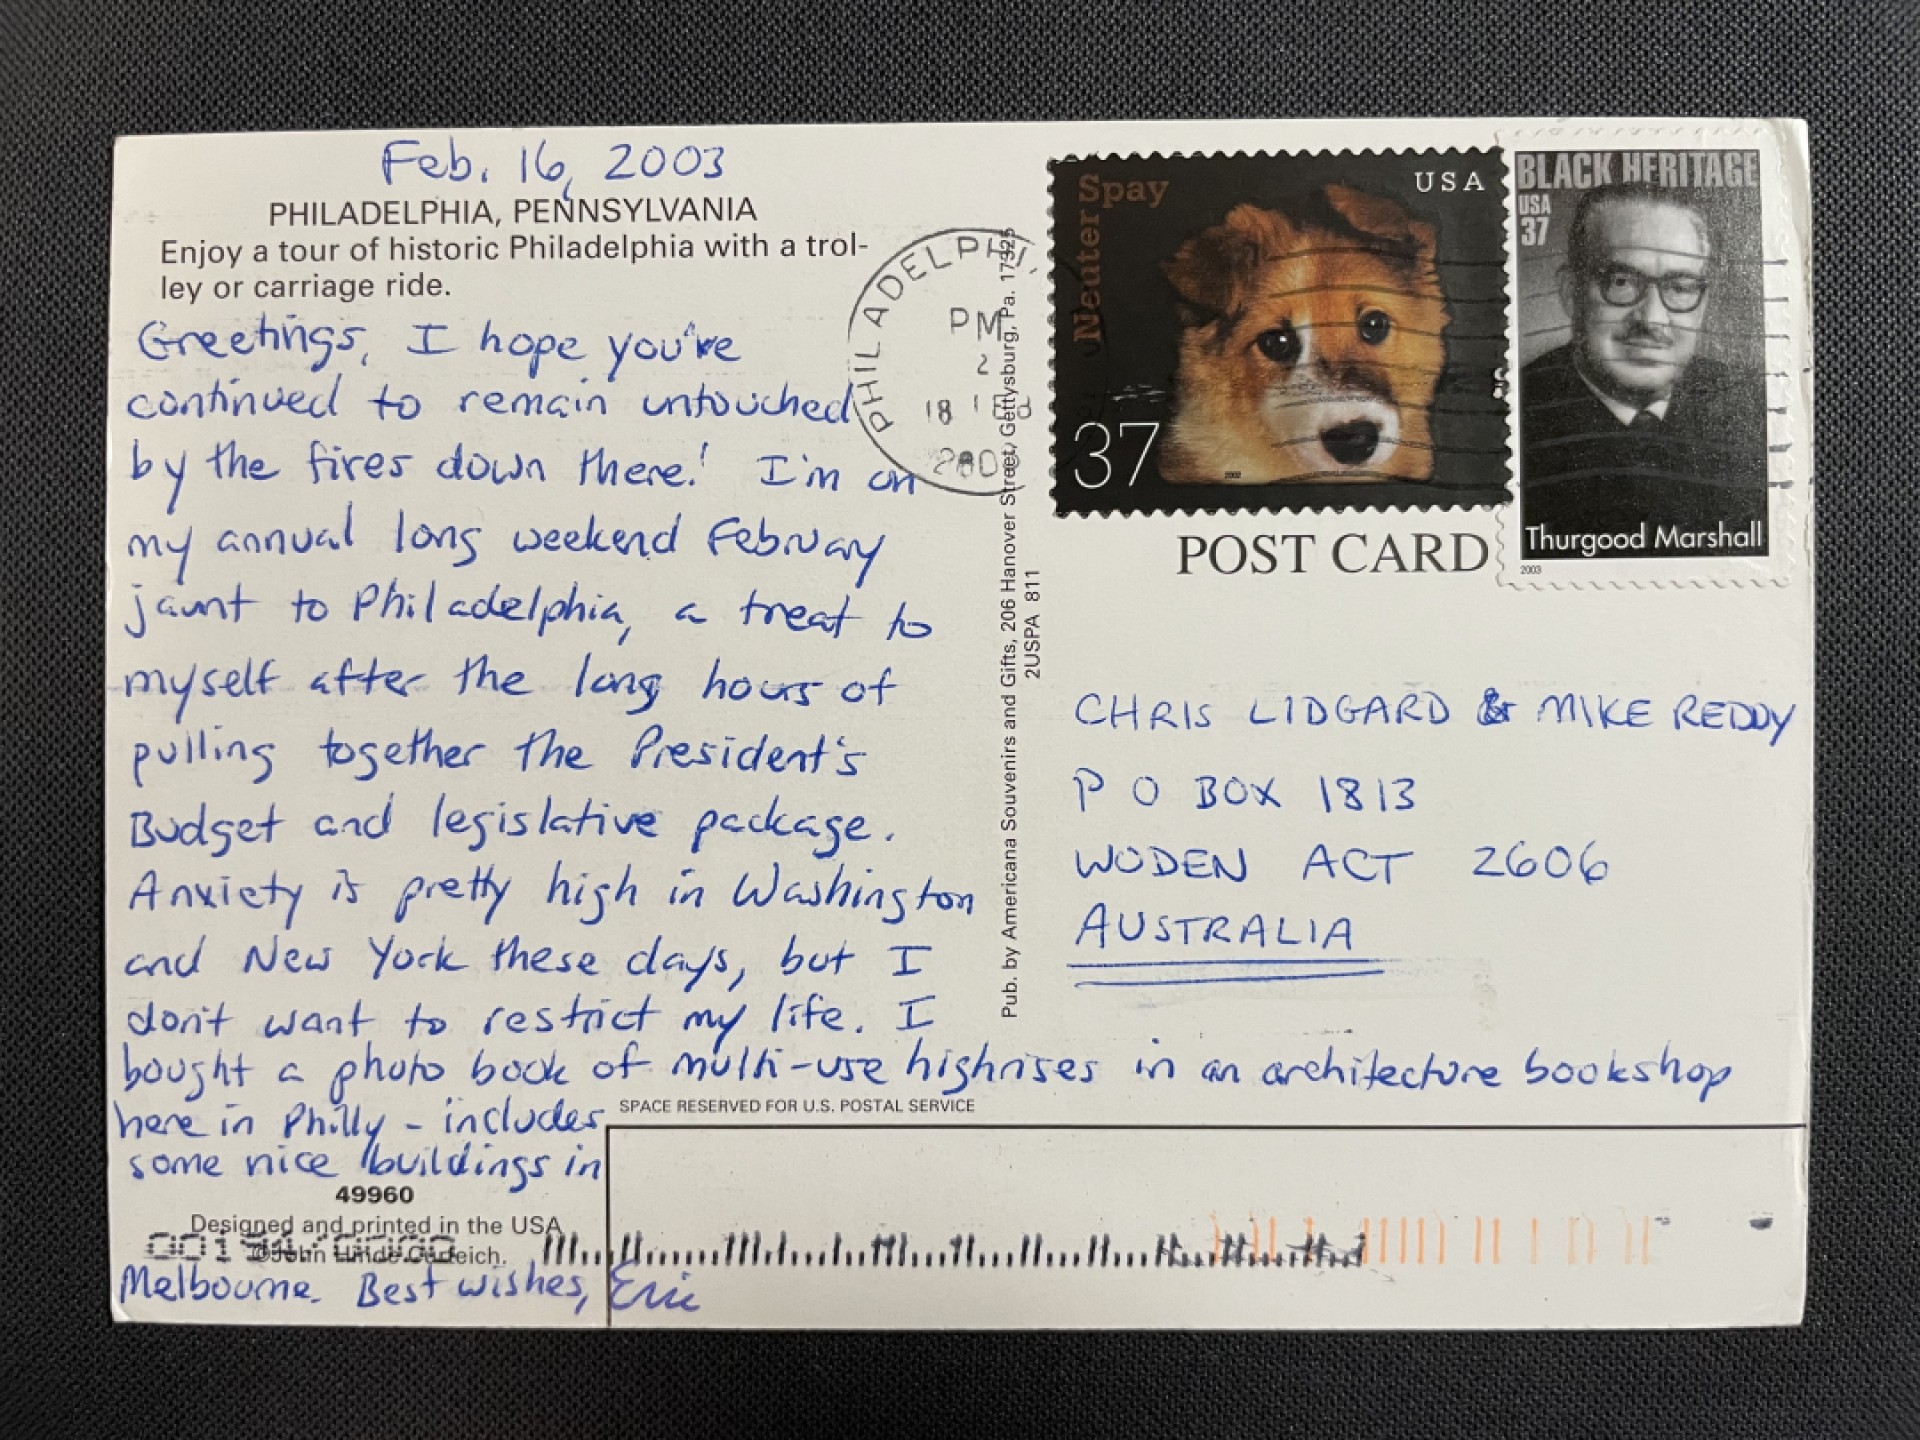 Feb. 16, 2003
PHILADELPHIA, PENNSYLVANIA
Enjoy a tour of historic Philadelphia with a trol-
ley or carriage ride.
Greetings, I hope you've
continued to remain untouched
by the fires down there! I'm on
my annual long weekend February
jaunt to Philadelphia, a treat to
myself after the long hours of
pulling together the President's
Budget and legislative package.
Anxiety is pretty high in Washington
and New York these days, but I
don't want to restrict my life. I
bought a photo book of multi-use highrises in an architecture bookshop
here in Philly - includes
some nice buildings in
49960
Designed and printed in the USA
©John Hinde Curteich.
Melbourne. Best wishes, Eric
PHILADELPHI
PM
2
18
Pub. by Americana Souvenirs and Gifts, 206 Hanover Street, Gettysburg, Pa. 17325
2USPA 811
Neuter Spay
USA
37
2002
BLACK HERITAGE
USA
37
Thurgood Marshall
2003
POST CARD
CHRIS LIDGARD & MIKE REDDY
P O BOX 1813
WODEN ACT 2606
AUSTRALIA
SPACE RESERVED FOR U.S. POSTAL SERVICE